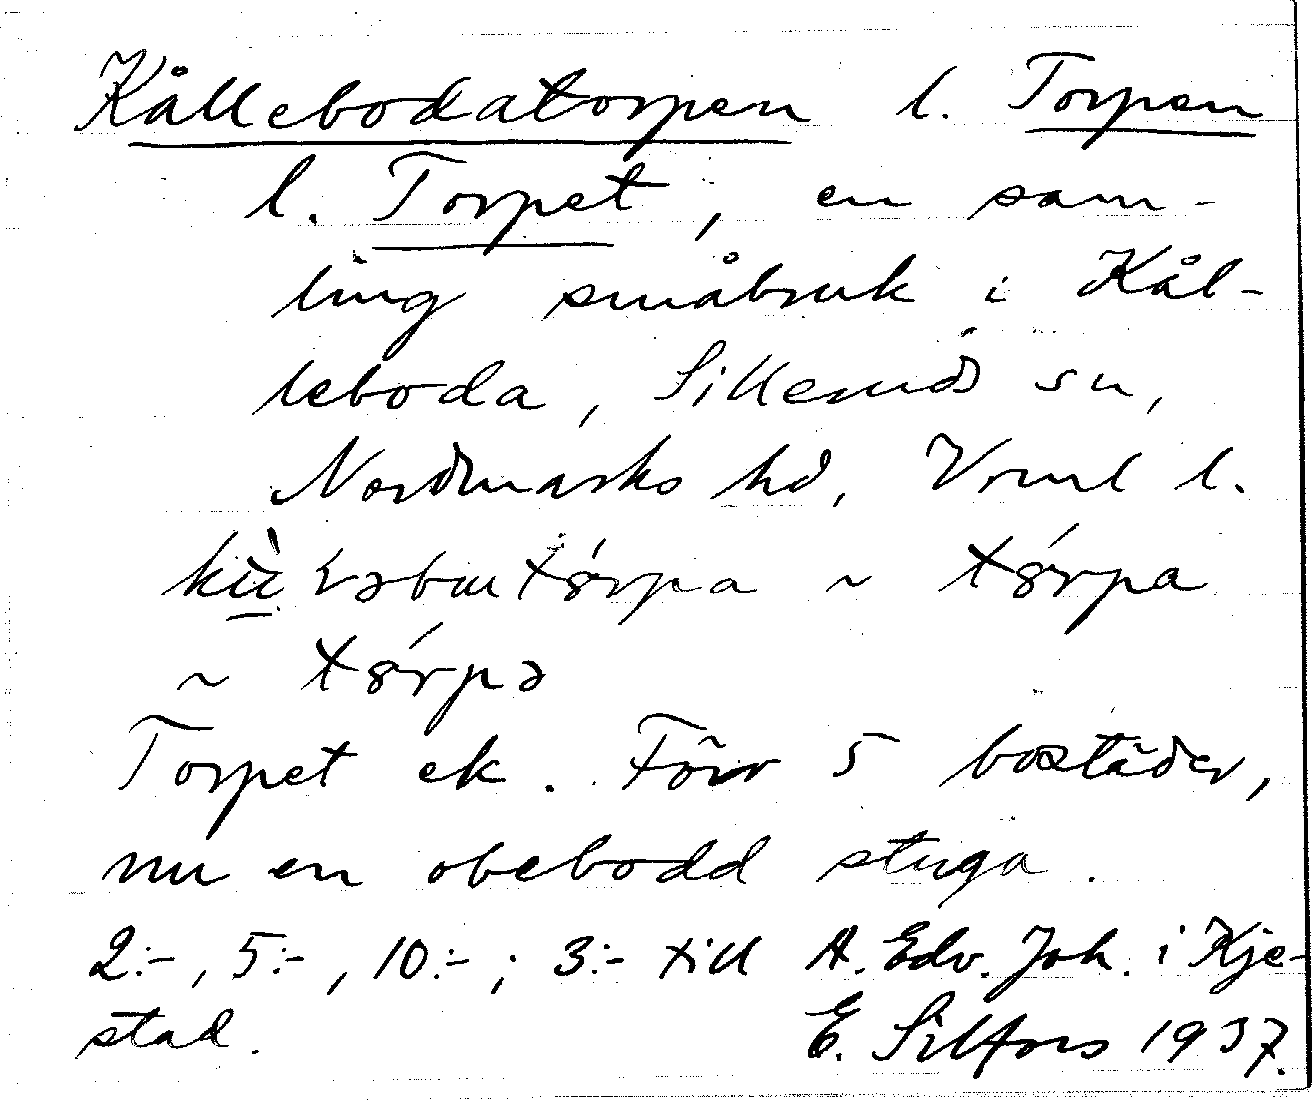 Kållebodatorpen l. Torpen
l. Torpet, en sam-
ling småbruk i Kål-
leboda, Sillerud sn,
Nordmarks hd, Vrml l.
~ tórpa
~ tórpə
Torpet ek. Förr 5 bostäder,
nu en obebodd stuga.
2:-, 5:-, 10:-; 3:- till A. Edv. Joh. i Kje-
stad. E. Silfors 1937.